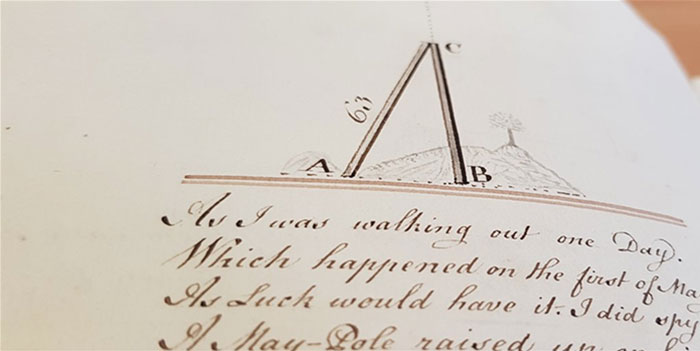 C
63
A
B
As I was walking out one Day.
Which happened on the first of May
As Luck would have it. I did spy
A May-Pole raised up on hi